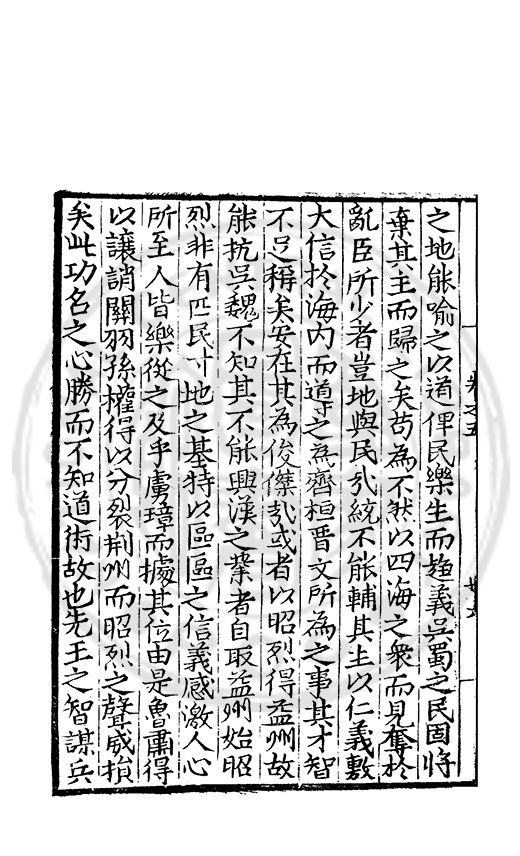 之地能喻之以道俾民樂生而趨義吳蜀之民固將
棄其主而歸之矣苟為不然以四海之衆而見奪於
亂臣所少者豈地與民哉統不能輔其主以仁義敷
大信於海内而導之為齊桓晋文所為之事其才智
不足稱矣安在其為俊傑哉或者以昭烈得益州故
能抗吳魏不知其不能興漢之業者自取益州始昭
烈非有匹民寸地之基特以區區之信義感激人心
所至人皆樂從之及乎虜璋而據其位由是魯肅得
以讓誚關羽孫權得以分裂荆州而昭烈之聲威損
矣此功名之心勝而不知道術故也先王之智謀兵
卷之五